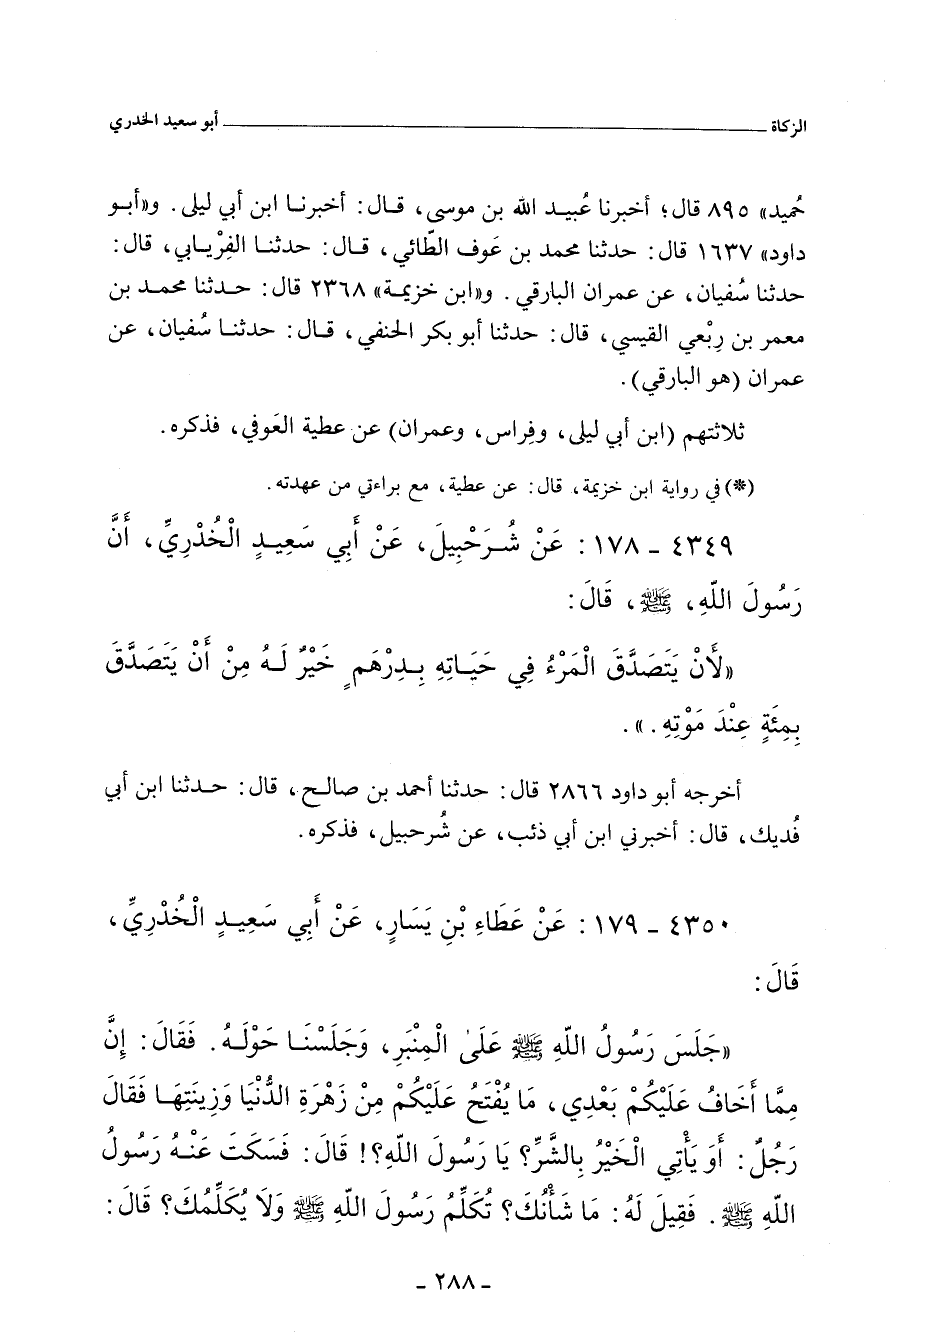 الزكاة ــــــــــــــــــــــــــــــــــــــــ أبو سعيد الخدري
حُميد» ٨٩٥ قال؛ أخبرنا عُبيد الله بن موسى، قال: أخبرنا ابن أبي ليلى. و«أبو
داود» ١٦٣٧ قال: حدثنا محمد بن عَوف الطّائي، قال: حدثنا الفِرْيابي، قال:
حدثنا سُفيان، عن عمران البارقي. و«ابن خزيمة» ٢٣٦٨ قال: حدثنا محمد بن
معمر بن رِبْعي القيسي، قال: حدثنا أبو بكر الحنفي، قال: حدثنا سُفيان، عن
عمران (هو البارقي).
ثلاثتهم (ابن أبي ليلى، وفِراس، وعمران) عن عطية العَوفي، فذكره.
(*) في رواية ابن خزيمة، قال: عن عطية، مع براءتي من عهدته.
٤٣٤٩ - ١٧٨: عَنْ شُرَحْبِيلَ، عَنْ أَبِي سَعِيدٍ الْخُدْرِيِّ، أَنَّ
رَسُولَ اللّهِ، ﷺ، قَالَ:
«لَأَنْ يَتَصَدَّقَ الْمَرْءُ فِي حَيَاتِهِ بِدِرْهَمٍ خَيْرٌ لَهُ مِنْ أَنْ يَتَصَدَّقَ
بِمِئَةٍ عِنْدَ مَوْتِهِ.».
أخرجه أبو داود ٢٨٦٦ قال: حدثنا أحمد بن صالح، قال: حدثنا ابن أبي
فُديك، قال: أخبرني ابن أبي ذئب، عن شُرحبيل، فذكره.
٤٣٥٠ - ١٧٩: عَنْ عَطَاءِ بْنِ يَسَارٍ، عَنْ أَبِي سَعِيدٍ الْخُدْرِيِّ،
قَالَ:
«جَلَسَ رَسُولُ اللّهِ ﷺ عَلَىٰ الْمِنْبَرِ، وَجَلَسْنَا حَوْلَهُ. فَقَالَ: إِنَّ
مِمَّا أَخَافُ عَلَيْكُمْ بَعْدِي، مَا يُفْتَحُ عَلَيْكُمْ مِنْ زَهْرَةِ الدُّنْيَا وَزِينَتِهَا فَقَالَ
رَجُلٌ: أَوَ يَأْتِي الْخَيْرُ بِالشَّرِّ؟ يَا رَسُولَ اللّهِ؟! قَالَ: فَسَكَتَ عَنْهُ رَسُولُ
اللّهِ ﷺ. فَقِيلَ لَهُ: مَا شَأْنُكَ؟ تُكَلِّمُ رَسُولَ اللّهِ ﷺ وَلَا يُكَلِّمُكَ؟ قَالَ:
- ٢٨٨ -